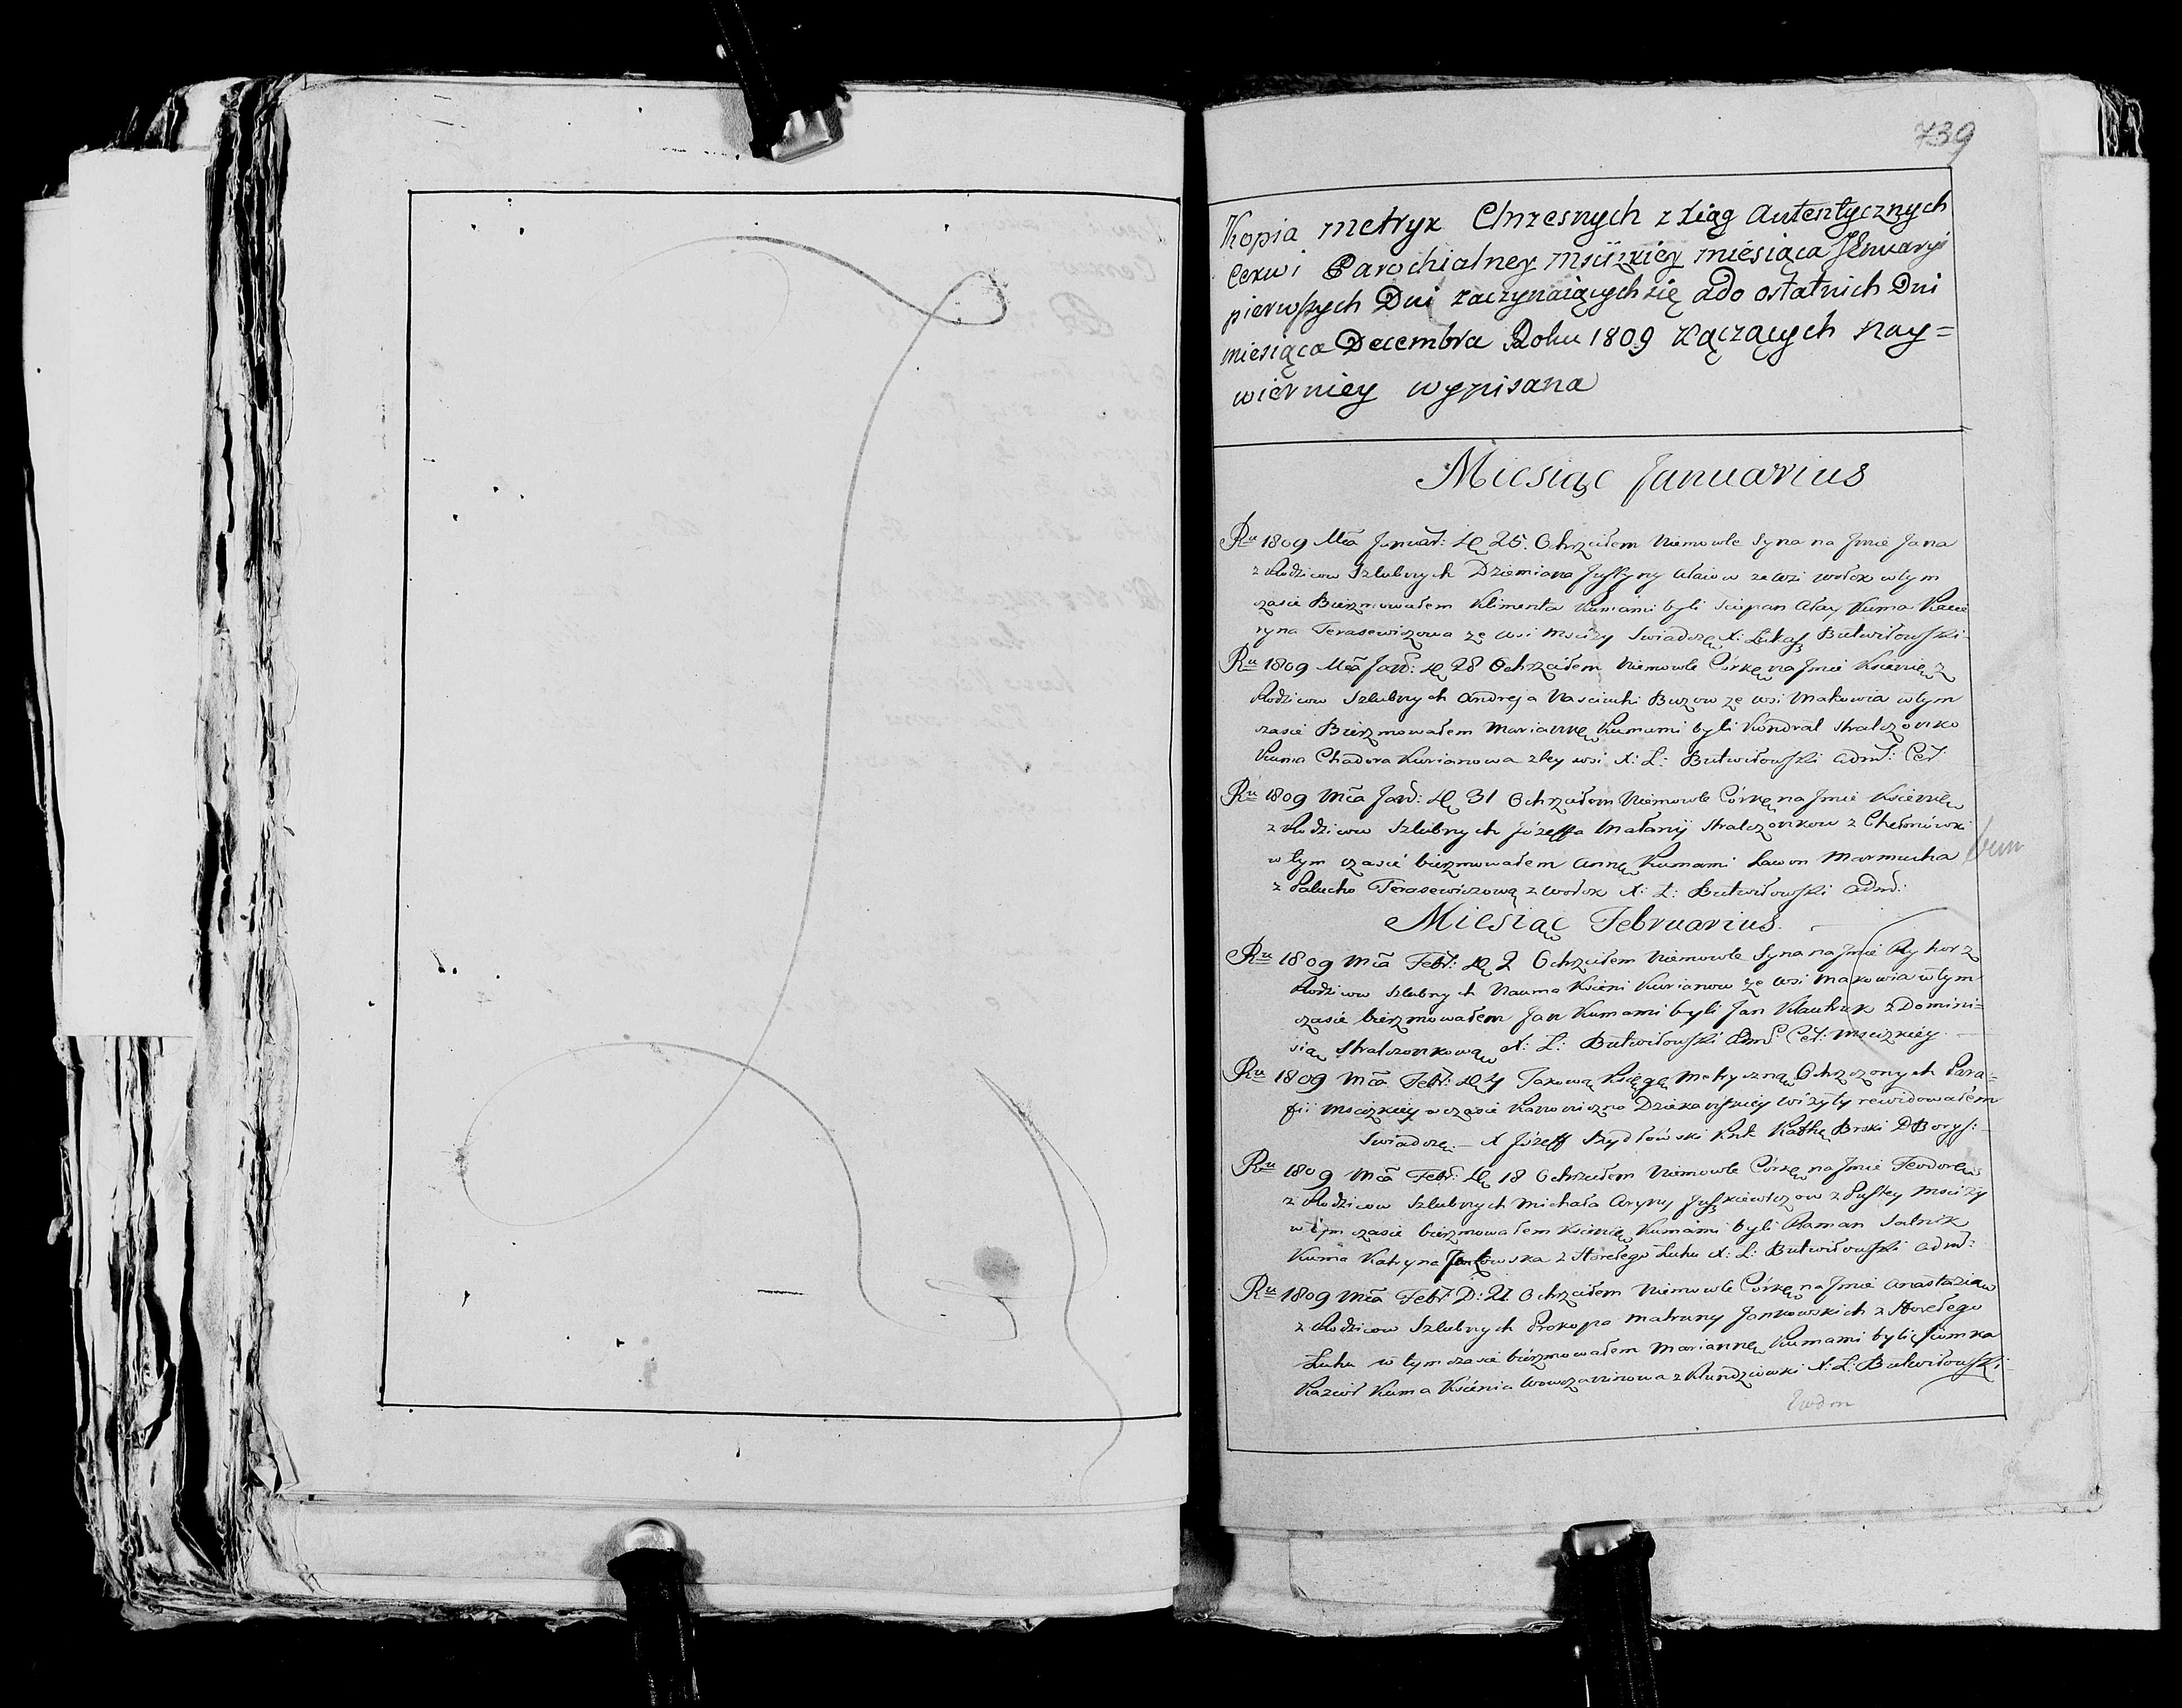 739
Kopia metryk Chrzesnych z xiąg Autentycznych
Cerkwi Parochialney Mściżkiey miesiąca Jenuaryi
pierwszych Dni zaczynaiących się ado ostatnich Dni
miesiąca Decembra Roku 1809 Kączących nay=
wierniey wypisana
Miesiąc Januarius
Ru 1809 Mca Januar: D 25. Ochrzciłem Niemowle Syna na Jmie Jana
z Rodzicow Szlubnych Dziemiana Justyny Ałaiow ze Wsi Wołok w tym
czasie Bierzmowałem Klimenta Kumami byli Sciepan Ałay Kuma Kate
ryna Terasewiczowa ze wsi Mściży Swiadczę X: Łukasz Butwiłowski
Ru 1809 Mca Jan: D 28 Ochrzciłem Niemowle Córkę na Jmie Ksienię z
Rodzicow Szlubnych Andreja Nasciuhi Buzow ze wsi Makowia w tym
czasie Bierzmowałem Mariannę Kumami byli Kondrat Stralczonko
Kuma Chadora Kurianowa z tey wsi X: Ł: Butwiłowski Adm: Cer:
Ru 1809 Mca Jan: D 31 Ochrzciłem Niemowle Córkę na Jmie Ksienię
z Rodzicow Szlubnych Józeffa Małanij Stralczonkow z Chełmówki
w tym czasie bierzmowałem Annę Kumami Ławon Marmucha
z Palucho Terasewiczową z Wołok X: Ł: Butwiłowski Adm:
Miesiąc Februarius
Ru 1809 Mca Febr: D 2 Ochrzciłem Niemowle Syna na Jmie Ryhor z
Rodzicow Szlubnych Nauma Ksieni Kurianow ze wsi Makowia w tym
czasie bierzmowałem Jan Kumami byli Jan Klauhuk z Domini=
sią Stralczonkową X: Ł: Butwiłowski Adm: Cer: Mscizkiey
Ru 1809 Mca Febr: D 4 Takową Księgę Metryczną Ochrzczonych Para=
fii Mscizkiey w czasie Kanoniczno Dziekanskiey Wizyty rewidowałem
Swiadczę. X Józeff Szydłowski Knk Kathe Brski D Borys:
Ru 1809 Mca Febr: D 18 Ochrzciłem Niemowle Córkę na Jmie Teodorę
z Rodzicow Szlubnych Michała Aryny Juszkiewiczow z Pustey Msciży
w tym czasie bierzmowałem Ksienię Kumami byli Raman Salnik
Kuma Katryna Jankowska z Horełego Łuhu X: Ł: Butwiłowski Adm:
Ru 1809 Mca Febr D: 21 Ochrzciłem Niemowle Córkę na Jmie Anastazią
z Rodzicow Szlubnych Prokopa Matruny Jankowskich z Horełego
Łuhu w tym czasie bierzmowałem Mariannę Kumami byli Jumka
Kazioł Kuma Ksienia Wowczaninowa z Rundziowki X: Ł: Butwiłowski